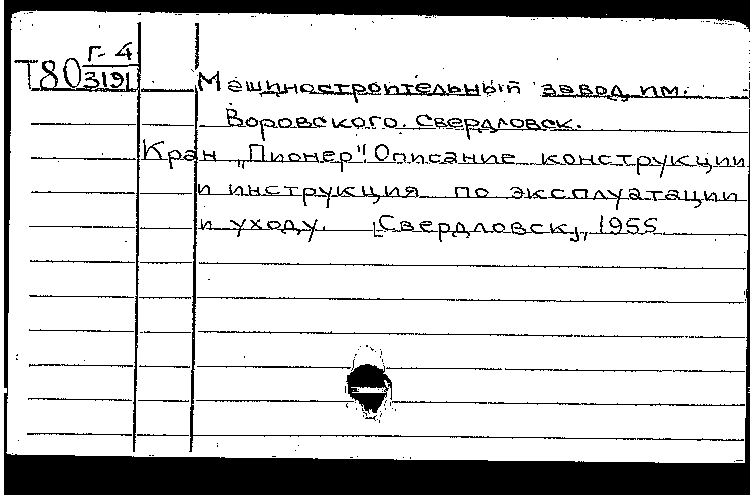 Г-4
Т80 3191
Машиностроительный завод им.
Воровского. Свердловск.
Кран „Пионер". Описание конструкции
и инструкция по эксплуатации
и уходу. [Свердловск], 1955